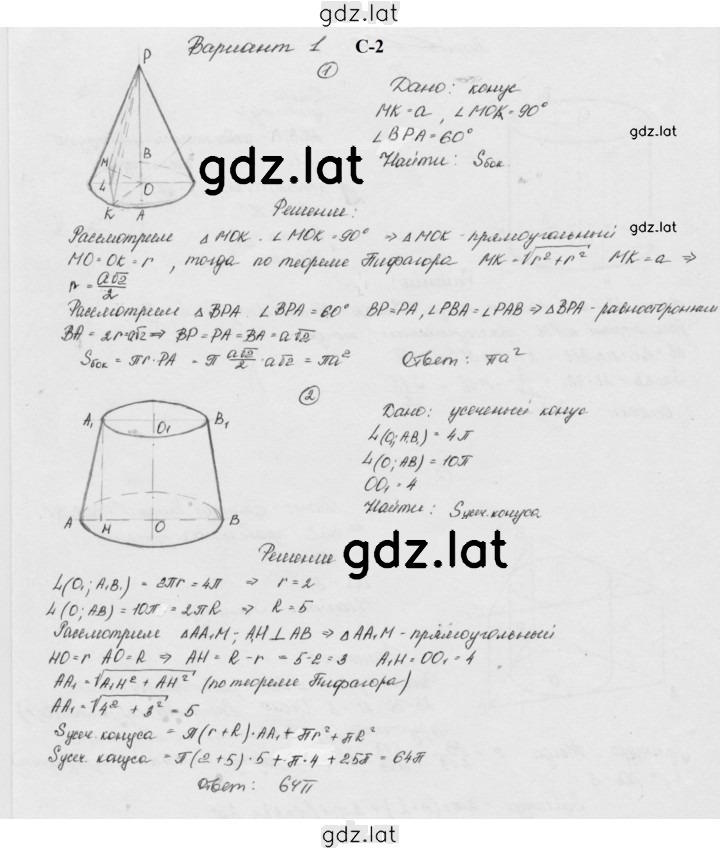 gdz.lat
Вариант 1 С-2
1
P
M
B
4
O
K
A
Дано: конус
MK = a, ∠MOK = 90°
∠BPA = 60°
Найти: Sбок.
gdz.lat
gdz.lat
Решение:
Рассмотрим △MOK. ∠MOK = 90° ⇒ △MOK - прямоугольный
MO = OK = r, тогда по теореме Пифагора MK = √r²+r² MK = a ⇒
r = a√2/2
Рассмотрим △BPA ∠BPA = 60° BP = PA, ∠PBA = ∠PAB ⇒ △BPA - равносторонний
BA = 2r = a√2 ⇒ BP = PA = BA = a√2
Sбок = πr·PA = π a√2/2 · a√2 = πa² Ответ: πa²
2
A₁
O₁
B₁
A
M
O
B
Дано: усеченный конус
L(O; A₁B₁) = 4π
L(O; AB) = 10π
OO₁ = 4
Найти: Sусеч.конуса
gdz.lat
gdz.lat
Решение
L(O₁; A₁B₁) = 2πr = 4π ⇒ r = 2
L(O; AB) = 10π = 2πR ⇒ R = 5
Рассмотрим △AA₁M; AH ⊥ AB ⇒ △AA₁M - прямоугольный
HO = r AO = R ⇒ AH = R - r = 5-2 = 3 A₁H = OO₁ = 4
AA₁ = √A₁H² + AH² (по теореме Пифагора)
AA₁ = √4² + 3² = 5
Sусеч.конуса = π(r+R)·AA₁ + πr² + πR²
Sусеч. конуса = π(2+5)·5 + π·4 + 25π = 64π
Ответ: 64π
gdz.lat